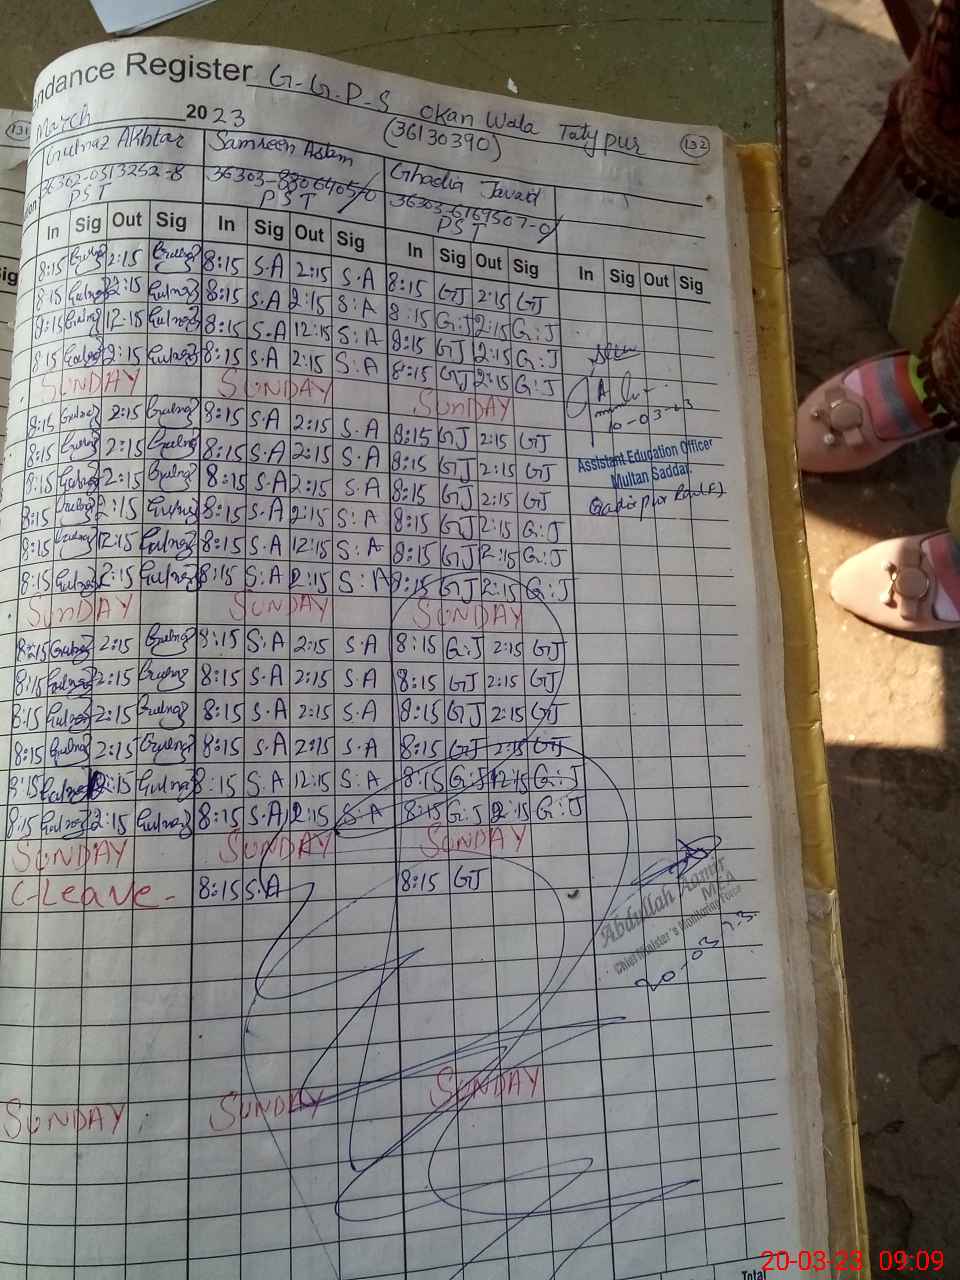 ndance Register G.G.P.S Okan Wala Tatypur
March 2023 (36130390) 132
131
Gulnaz Akhtar Samreen Aslam Ghadia Javaid
36302-0513252-8 36303-8806405/0 36303-6169507-0
PST PST PST
In Sig Out Sig In Sig Out Sig In Sig Out Sig In Sig Out Sig
Sig
8:15 Gulnaz 2:15 Gulnaz 8:15 S.A 2:15 S.A 8:15 GJ 2:15 GJ
8:15 Gulnaz 2:15 Gulnaz 8:15 S.A 2:15 S:A 8:15 G:J 2:15 G:J
8:15 Gulnaz 12:15 Gulnaz 8:15 S.A 12:15 S:A 8:15 GJ 12:15 G:J
8:15 Gulnaz 2:15 Gulnaz 8:15 S.A 2:15 S:A 8:15 GJ 2:15 G:J
SUNDAY SUNDAY SUNDAY
8:15 Gulnaz 2:15 Gulnaz 8:15 S.A 2:15 S.A 8:15 GJ 2:15 GJ
10-03-23
8:15 Gulnaz 2:15 Gulnaz 8:15 S.A 2:15 S.A 8:15 GJ 2:15 GJ
Assistant Education Officer
Multan Saddar
8:15 Gulnaz 2:15 Gulnaz 8:15 S.A 2:15 S.A 8:15 GJ 2:15 GJ
8:15 Gulnaz 2:15 Gulnaz 8:15 S.A 2:15 S:A 8:15 GJ 2:15 G:J
8:15 Gulnaz 12:15 Gulnaz 8:15 S.A 12:15 S:A 8:15 GJ 12:15 G:J
8:15 Gulnaz 2:15 Gulnaz 8:15 S:A 2:15 S:A 8:15 GJ 2:15 G:J
SUNDAY SUNDAY SUNDAY
8:15 Gulnaz 2:15 Gulnaz 8:15 S:A 2:15 S.A 8:15 G:J 2:15 GJ
8:15 Gulnaz 2:15 Gulnaz 8:15 S.A 2:15 S.A 8:15 GJ 2:15 GJ
8:15 Gulnaz 2:15 Gulnaz 8:15 S.A 2:15 S.A 8:15 GJ 2:15 GJ
8:15 Gulnaz 2:15 Gulnaz 8:15 S.A 2:15 S.A 8:15 GJ 2:15 GJ
8:15 Gulnaz 12:15 Gulnaz 8:15 S:A 12:15 S:A 8:15 G:J 12:15 G:J
8:15 Gulnaz 2:15 Gulnaz 8:15 S.A 2:15 S.A 8:15 G:J 2:15 G:J
SUNDAY SUNDAY SUNDAY
C-Leave- 8:15 S.A 8:15 GJ
Abdullah Aamir
MEA
Chief Minister's Monitoring Force
20-03-23
SUNDAY SUNDAY SUNDAY
Total
20-03-23 09:09